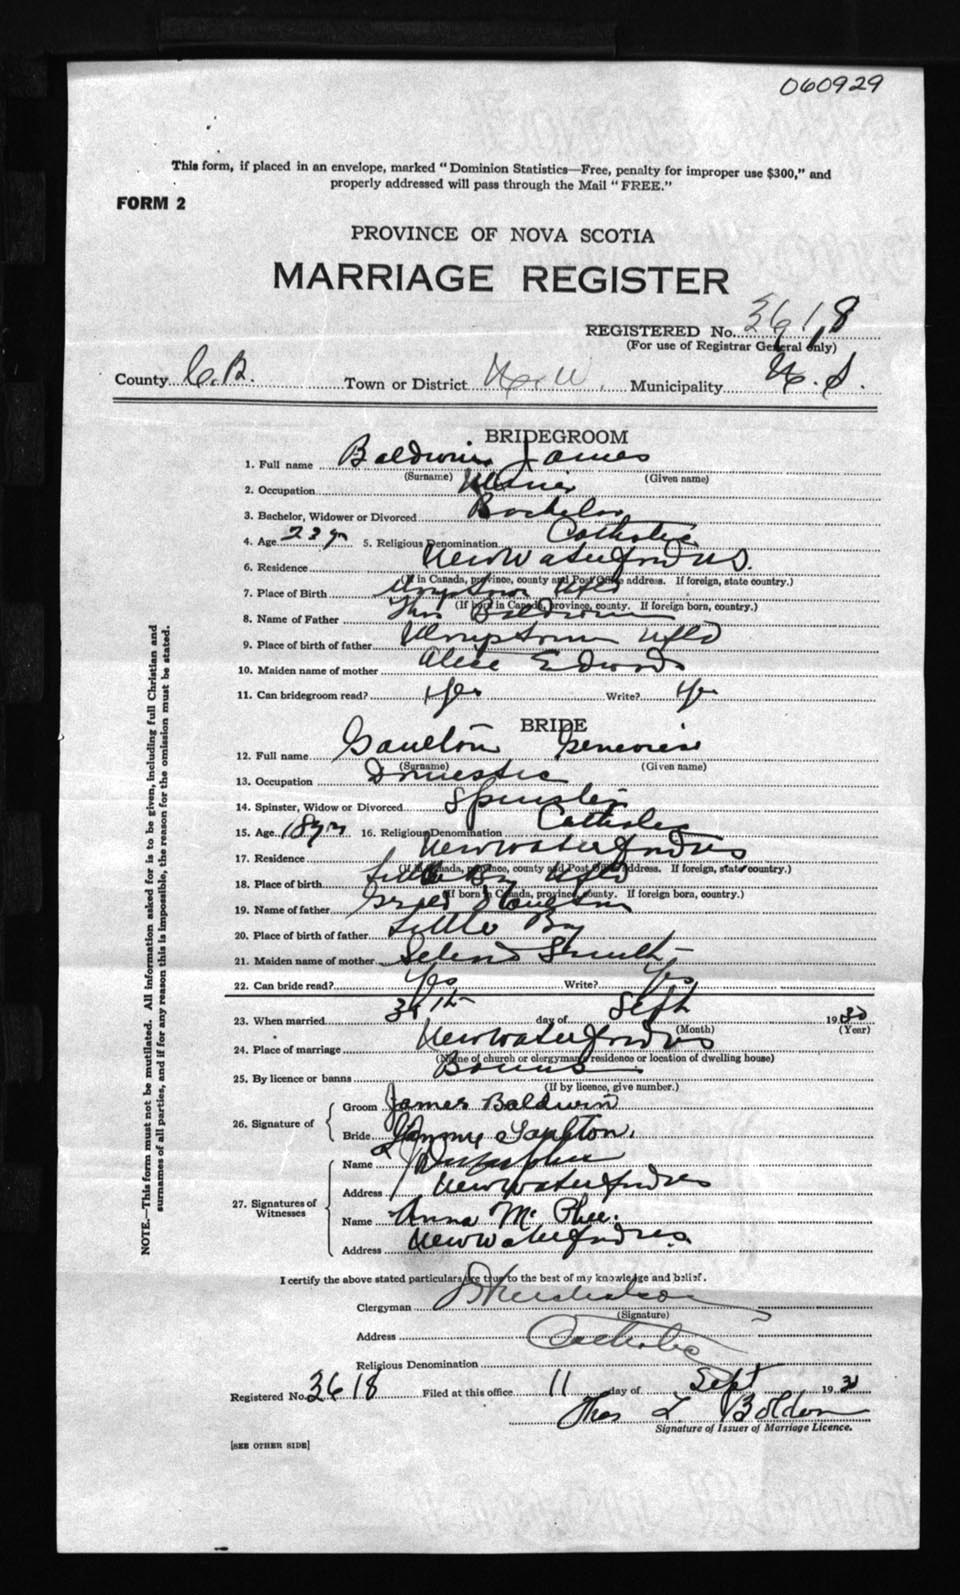 060929
This form, if placed in an envelope, marked "Dominion Statistics—Free, penalty for improper use $300," and
properly addressed will pass through the Mail "FREE."
FORM 2
PROVINCE OF NOVA SCOTIA
MARRIAGE REGISTER
REGISTERED No. 3618
(For use of Registrar General only)
County C.B. Town or District Municipality N.S.
BRIDEGROOM
1. Full name Baldwin James
(Surname) (Given name)
2. Occupation Miner
3. Bachelor, Widower or Divorced Bachelor
4. Age 23 yr 5. Religious Denomination Catholic
6. Residence New Waterford NS.
(If in Canada, province, county and Post Office address. If foreign, state country.)
7. Place of Birth Nfld
(If born in Canada, province, county. If foreign born, country.)
8. Name of Father Thos Baldwin
9. Place of birth of father Nfld
10. Maiden name of mother Alice Edwards
11. Can bridegroom read? yes Write? yes
BRIDE
12. Full name Saulton Genevieve
(Surname) (Given name)
13. Occupation Domestic
14. Spinster, Widow or Divorced Spinster
15. Age 18 yrs 16. Religious Denomination Catholic
17. Residence New Waterford NS
(If in Canada, province, county and Post Office address. If foreign, state country.)
18. Place of birth Little Bay Nfld
(If born in Canada, province, county. If foreign born, country.)
19. Name of father
20. Place of birth of father Little Bay
21. Maiden name of mother
22. Can bride read? Yes Write? Yes
23. When married day of Sept 1930
(Month) (Year)
24. Place of marriage New Waterford NS
(Name of church or clergyman's residence or location of dwelling house)
25. By licence or banns Banns
(If by licence, give number.)
26. Signature of
Groom James Baldwin
Bride
27. Signatures of Witnesses
Name
Address New Waterford NS
Name Anna Mc Phee.
Address New Waterford NS.
I certify the above stated particulars are true to the best of my knowledge and belief.
Clergyman
(Signature)
Address Catholic
Religious Denomination
Registered No. 3618 Filed at this office 11 day of Sept 193
Thos L Boldon
Signature of Issuer of Marriage Licence.
[SEE OTHER SIDE]
NOTE.—This form must not be mutilated. All information asked for is to be given, including full Christian and
surnames of all parties, and if for any reason this is impossible, the reason for the omission must be stated.